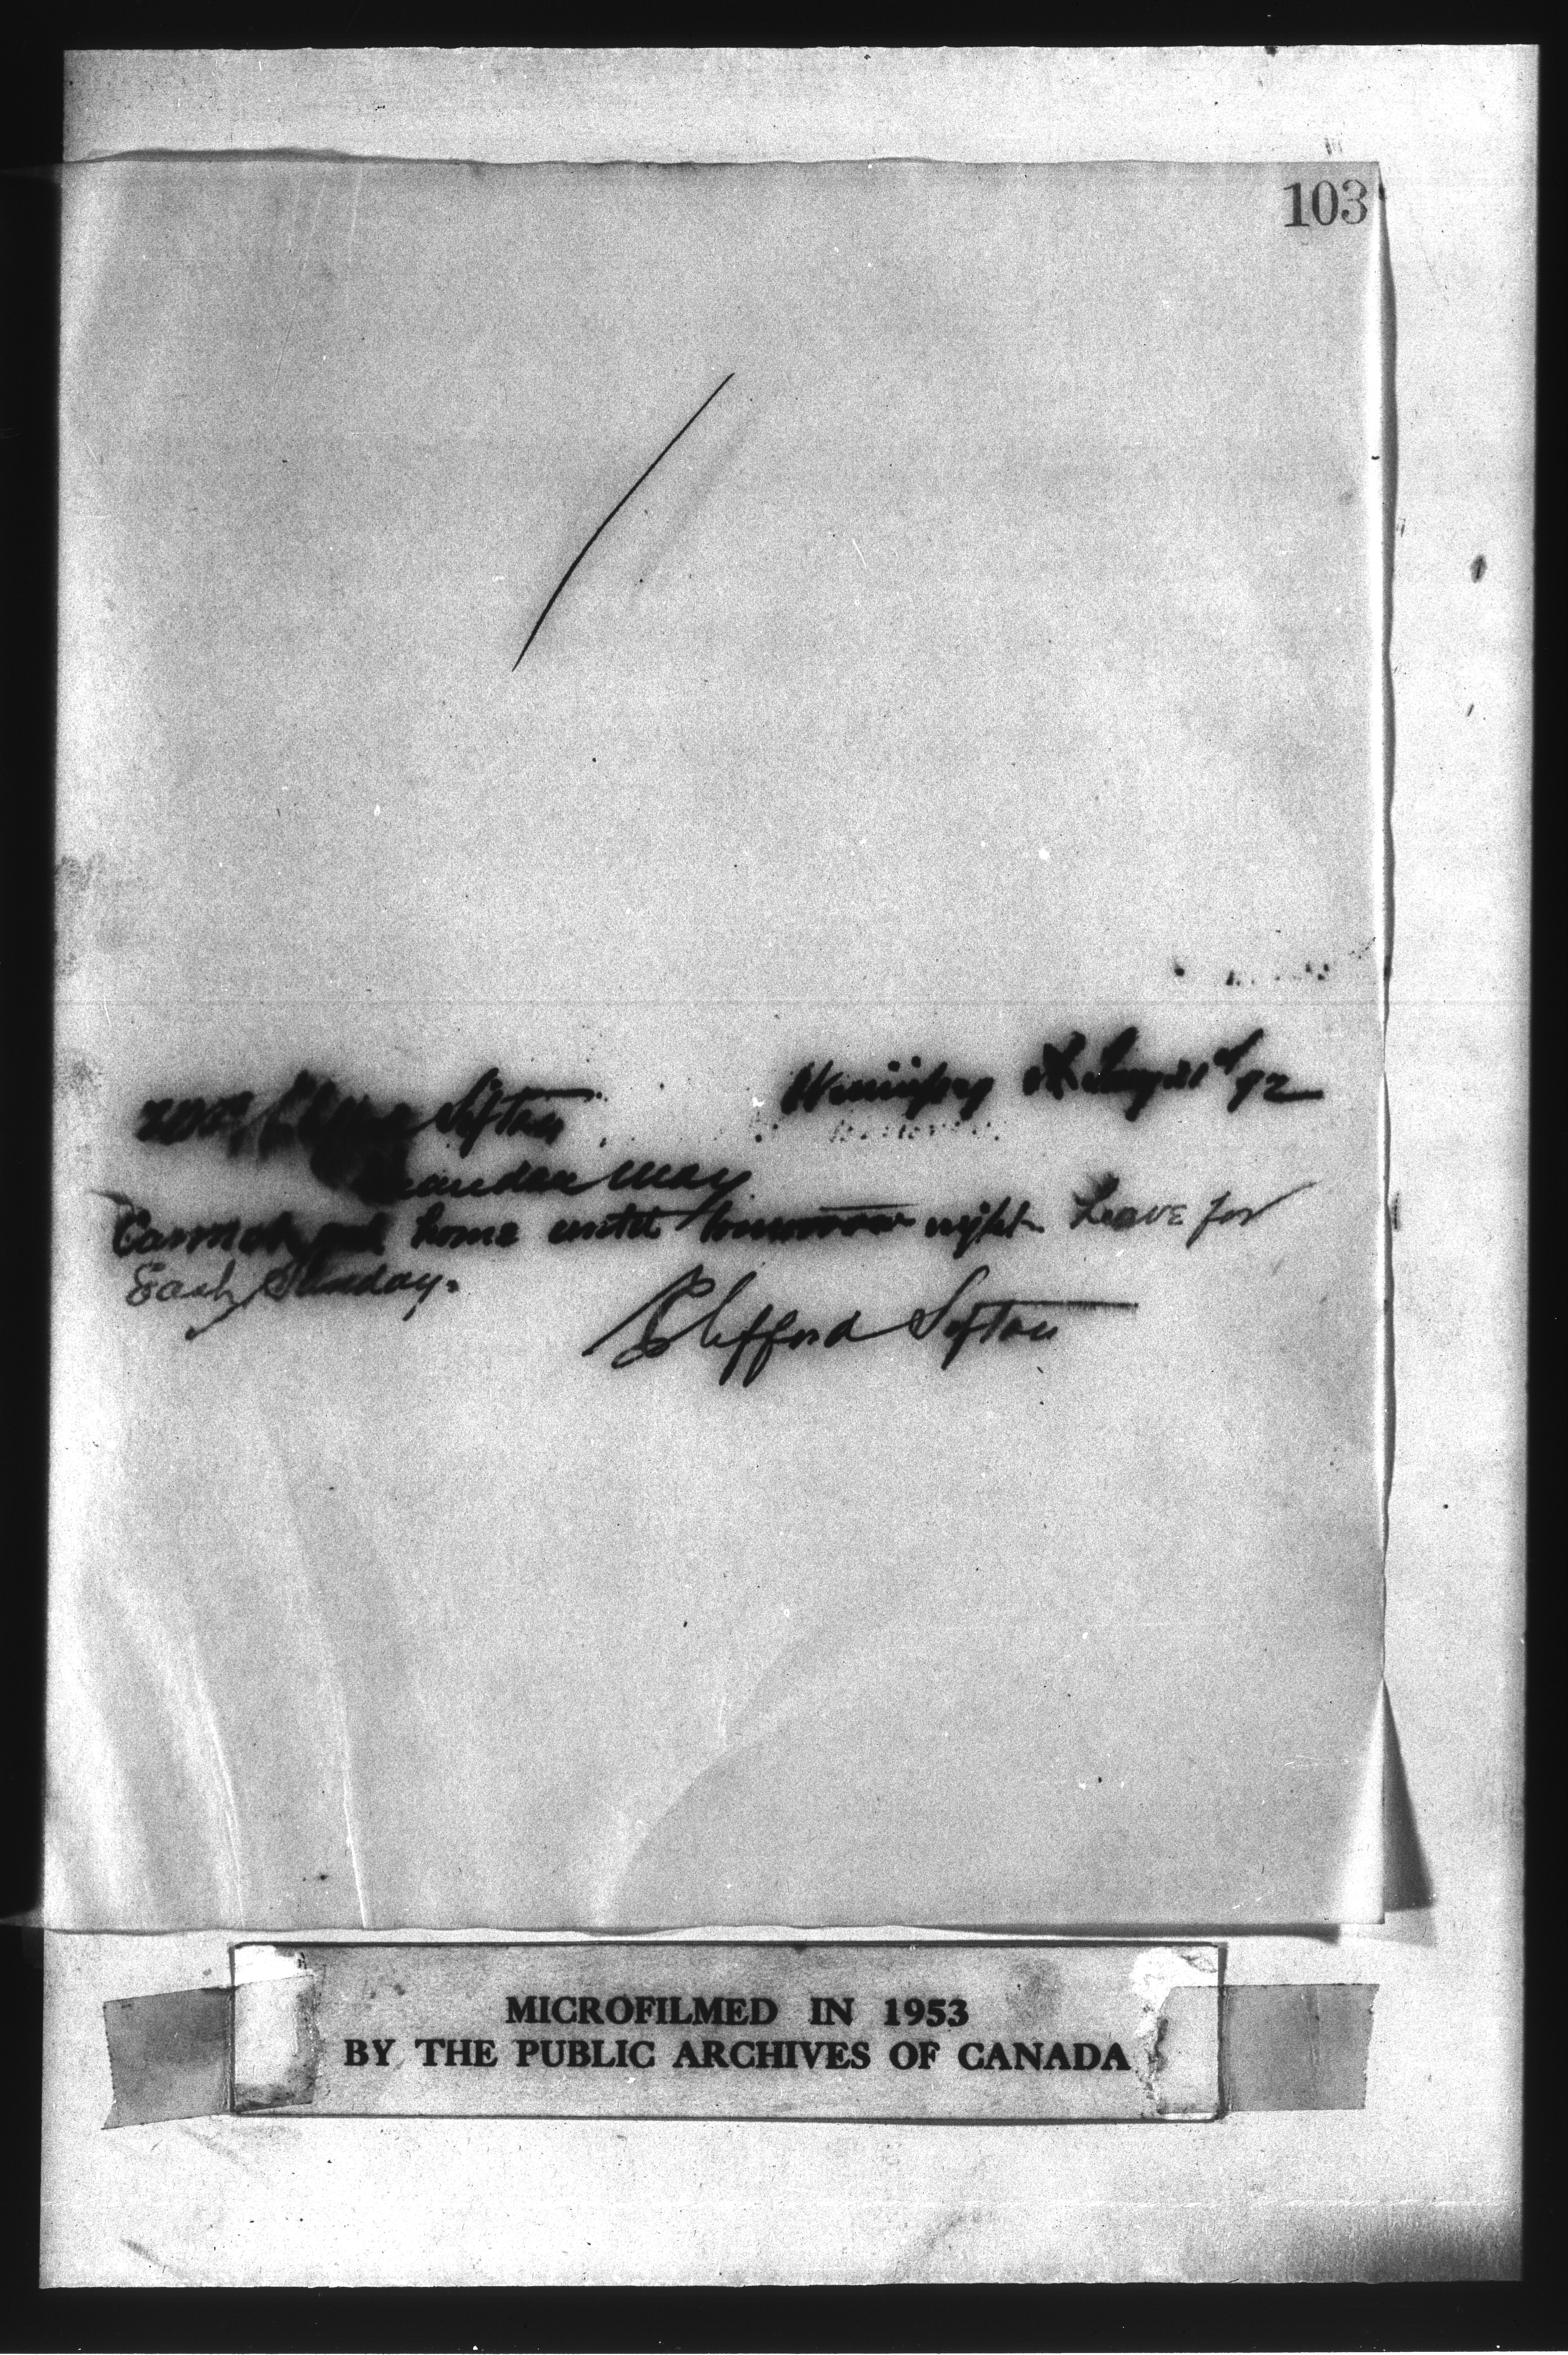 103
Winnipeg 92
Mrs Sifton
Brandon Man
Cannot get home until tomorrow night Leave for
East Sunday.
Clifford Sifton
MICROFILMED IN 1953
BY THE PUBLIC ARCHIVES OF CANADA